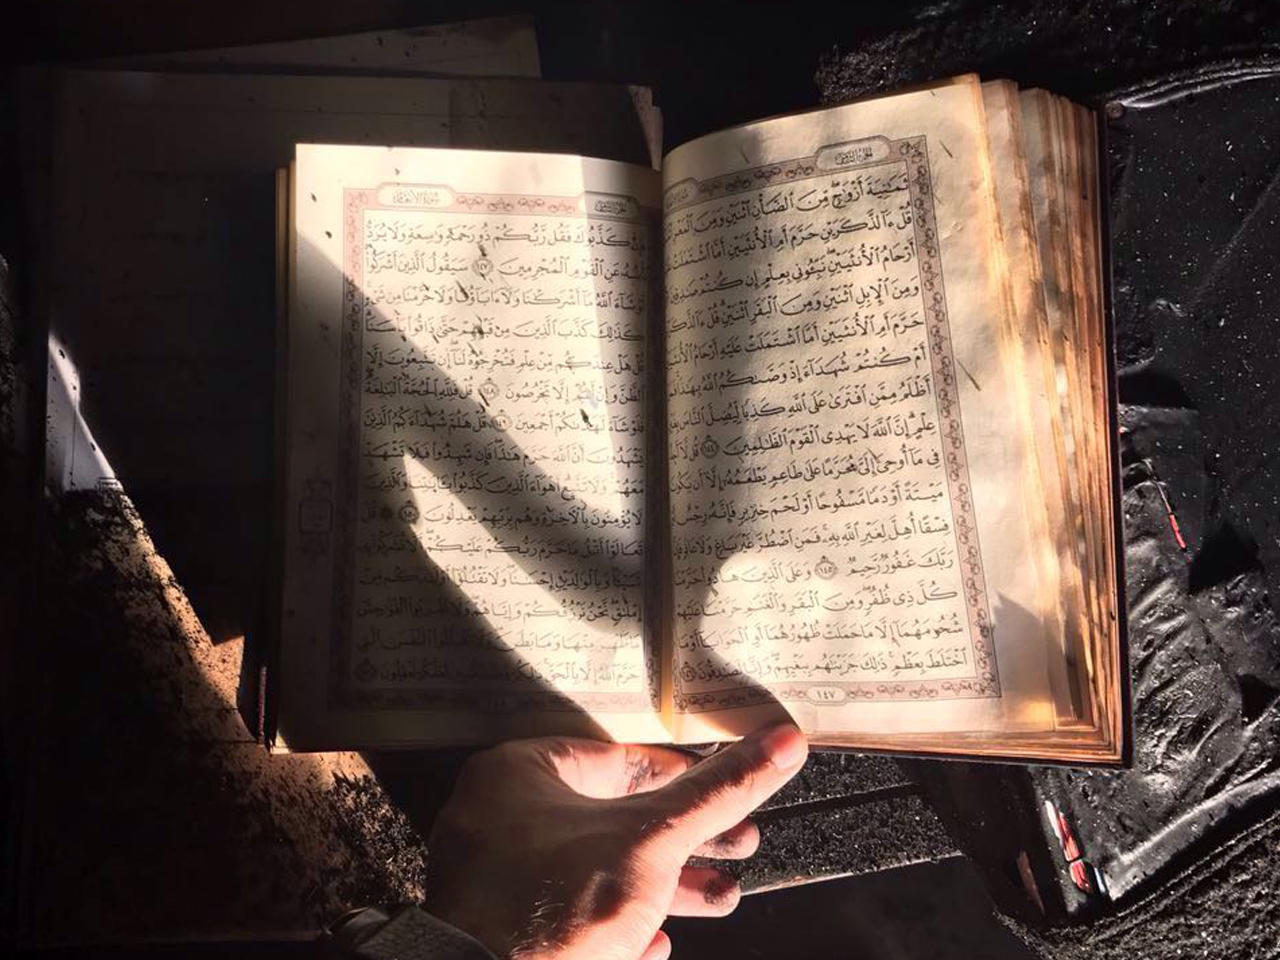 الجزء الثامن
ثَمَٰنِيَةَ أَزْوَٰجٍ مِّنَ ٱلضَّأْنِ ٱثْنَيْنِ وَمِنَ ٱلْمَعْزِ
قُلْ ءَآلذَّكَرَيْنِ حَرَّمَ أَمِ ٱلْأُنثَيَيْنِ أَمَّا ٱشْتَمَلَتْ
أَرْحَامُ ٱلْأُنثَيَيْنِ نَبِّـُٔونِى بِعِلْمٍ إِن كُنتُمْ صَٰدِقِينَ
وَمِنَ ٱلْإِبِلِ ٱثْنَيْنِ وَمِنَ ٱلْبَقَرِ ٱثْنَيْنِ قُلْ ءَآلذَّكَرَيْنِ
حَرَّمَ أَمِ ٱلْأُنثَيَيْنِ أَمَّا ٱشْتَمَلَتْ عَلَيْهِ أَرْحَامُ ٱلْأُنثَيَيْنِ
أَمْ كُنتُمْ شُهَدَآءَ إِذْ وَصَّىٰكُمُ ٱللَّهُ بِهَٰذَا
أَظْلَمُ مِمَّنِ ٱفْتَرَىٰ عَلَى ٱللَّهِ كَذِبًا لِّيُضِلَّ ٱلنَّاسَ
عِلْمٍ إِنَّ ٱللَّهَ لَا يَهْدِى ٱلْقَوْمَ ٱلظَّٰلِمِينَ ١٤٤ قُل لَّآ أَجِدُ
فِى مَآ أُوحِىَ إِلَىَّ مُحَرَّمًا عَلَىٰ طَاعِمٍ يَطْعَمُهُۥٓ إِلَّآ أَن يَكُونَ
مَيْتَةً أَوْ دَمًا مَّسْفُوحًا أَوْ لَحْمَ خِنزِيرٍ فَإِنَّهُۥ رِجْسٌ
فِسْقًا أُهِلَّ لِغَيْرِ ٱللَّهِ بِهِۦ فَمَنِ ٱضْطُرَّ غَيْرَ بَاغٍ وَلَا عَادٍ فَإِنَّ
رَبَّكَ غَفُورٌ رَّحِيمٌ ١٤٥ وَعَلَى ٱلَّذِينَ هَادُوا۟ حَرَّمْنَا
كُلَّ ذِى ظُفُرٍ وَمِنَ ٱلْبَقَرِ وَٱلْغَنَمِ حَرَّمْنَا عَلَيْهِمْ
شُحُومَهُمَآ إِلَّا مَا حَمَلَتْ ظُهُورُهُمَآ أَوِ ٱلْحَوَايَآ أَوْ مَا
ٱخْتَلَطَ بِعَظْمٍ ذَٰلِكَ جَزَيْنَٰهُم بِبَغْيِهِمْ وَإِنَّا لَصَٰدِقُونَ ١٤٦
١٤٧
الجزء الثامن
سورة الأنعام
فَإِن كَذَّبُوكَ فَقُل رَّبُّكُمْ ذُو رَحْمَةٍ وَٰسِعَةٍ وَلَا يُرَدُّ
بَأْسُهُۥ عَنِ ٱلْقَوْمِ ٱلْمُجْرِمِينَ ١٤٧ سَيَقُولُ ٱلَّذِينَ أَشْرَكُوا۟
لَوْ شَآءَ ٱللَّهُ مَآ أَشْرَكْنَا وَلَآ ءَابَآؤُنَا وَلَا حَرَّمْنَا مِن شَىْءٍ
كَذَٰلِكَ كَذَّبَ ٱلَّذِينَ مِن قَبْلِهِمْ حَتَّىٰ ذَاقُوا۟ بَأْسَنَا
قُلْ هَلْ عِندَكُم مِّنْ عِلْمٍ فَتُخْرِجُوهُ لَنَآ إِن تَتَّبِعُونَ إِلَّا
ٱلظَّنَّ وَإِنْ أَنتُمْ إِلَّا تَخْرُصُونَ ١٤٨ قُلْ فَلِلَّهِ ٱلْحُجَّةُ ٱلْبَٰلِغَةُ
فَلَوْ شَآءَ لَهَدَىٰكُمْ أَجْمَعِينَ ١٤٩ قُلْ هَلُمَّ شُهَدَآءَكُمُ ٱلَّذِينَ
يَشْهَدُونَ أَنَّ ٱللَّهَ حَرَّمَ هَٰذَا فَإِن شَهِدُوا۟ فَلَا تَشْهَدْ
مَعَهُمْ وَلَا تَتَّبِعْ أَهْوَآءَ ٱلَّذِينَ كَذَّبُوا۟ بِـَٔايَٰتِنَا وَٱلَّذِينَ
لَا يُؤْمِنُونَ بِٱلْءَاخِرَةِ وَهُم بِرَبِّهِمْ يَعْدِلُونَ ١٥٠ قُلْ
تَعَالَوْا۟ أَتْلُ مَا حَرَّمَ رَبُّكُمْ عَلَيْكُمْ أَلَّا تُشْرِكُوا۟ بِهِۦ
شَيْـًٔا وَبِٱلْوَٰلِدَيْنِ إِحْسَٰنًا وَلَا تَقْتُلُوٓا۟ أَوْلَٰدَكُم مِّنْ
إِمْلَٰقٍ نَّحْنُ نَرْزُقُكُمْ وَإِيَّاهُمْ وَلَا تَقْرَبُوا۟ ٱلْفَوَٰحِشَ
مَا ظَهَرَ مِنْهَا وَمَا بَطَنَ وَلَا تَقْتُلُوا۟ ٱلنَّفْسَ ٱلَّتِى
حَرَّمَ ٱللَّهُ إِلَّا بِٱلْحَقِّ ذَٰلِكُمْ وَصَّىٰكُم بِهِۦ لَعَلَّكُمْ تَعْقِلُونَ